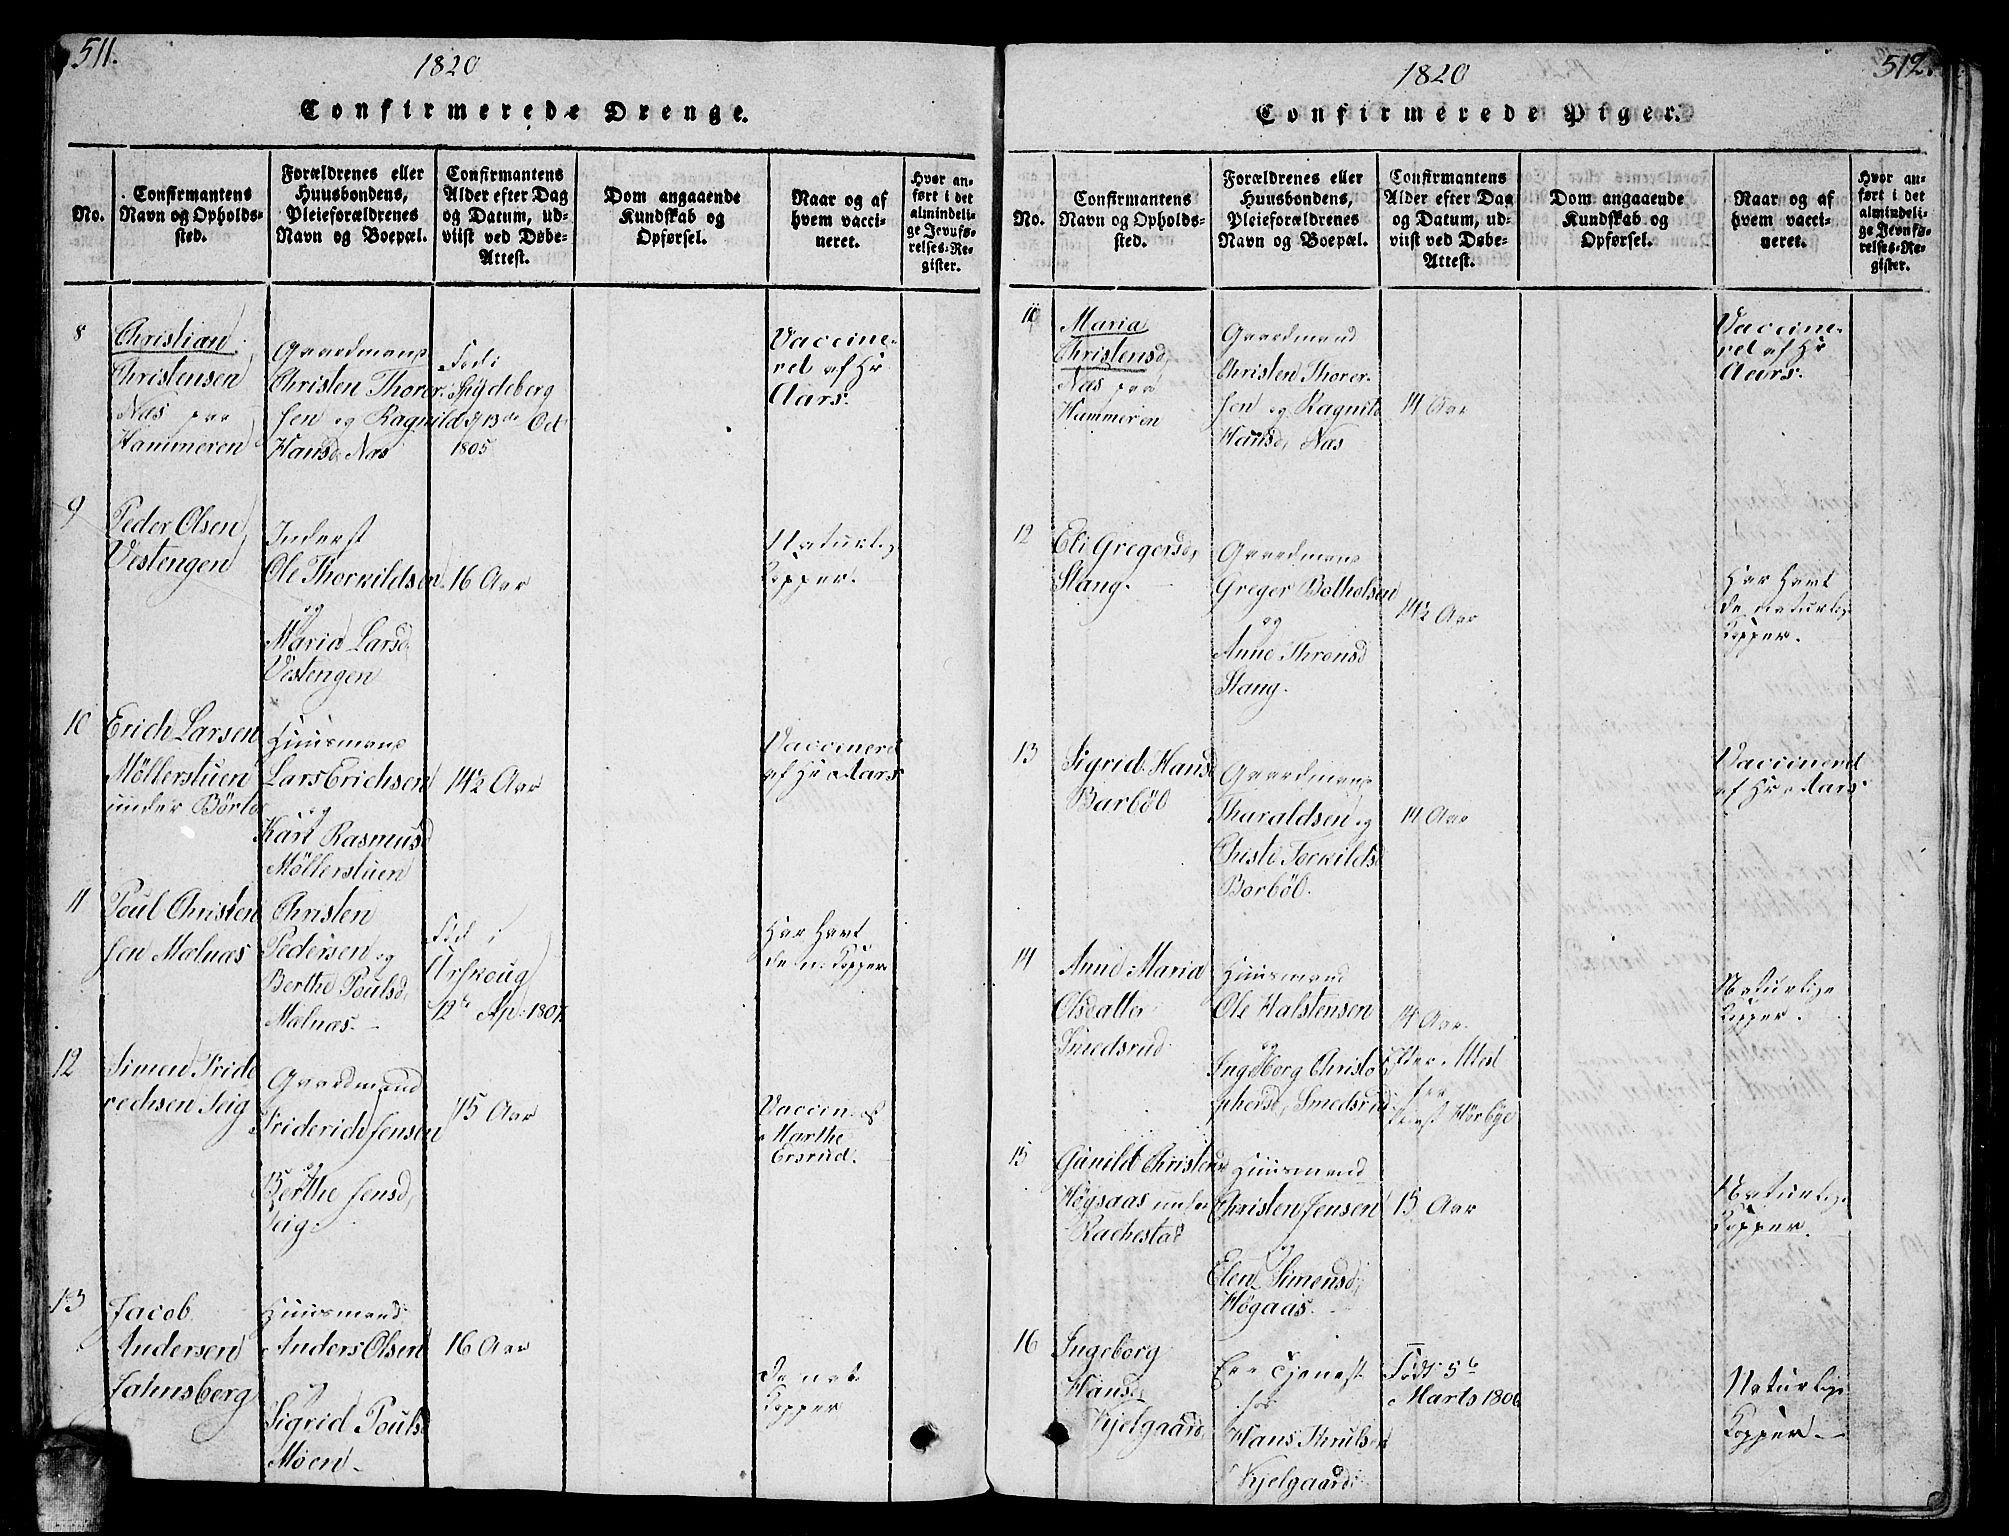 511.
1820
Confirmerede Drenge.
No.
Confirmantens
Navn og Opholds-
sted.
Forældrenes eller
Huusbondens,
Pleieforældrenes
Navn og Boepæl.
Confirmantens
Alder efter Dag
og Datum, ud-
viist ved Døbe-
Attest.
Dom angaaende
Kundskab og
Opførsel.
Naar og af
hvem vacci-
neret.
Hvor an-
ført i det
almindeli-
ge Jevnfø-
relses-Re-
gister.
8
Christian
Christensen
Næs paa
Hammeren
Gaardmand
Christen Thorer-
sen og Ragnild
Hansd. Næs
Fød i
Spydeberg
d. 13de Oct
1805
Vaccine-
ret af Hr
Aars.
9
Peder Olsen
Vestengen
Inderst
Ole Thorkildsen
og
Maria Larsd.
Vestengen
16 Aar
Naturlig
Kopper.
10
Erich Larsen
Möllerstuen
under Börböl
Huusmand
Lars Erichsen
og
Kari Rasmusd
Möllerstuen
14½ Aar
Vaccinered
af Hr Aars
11
Poul Christen
sen Mælnæs
Christen
Pedersen og
Berthe Poulsd.
Mælnæs.
Fød i
Urskoug
12te Ap: 1807.
Har havt
de n: Kopper
12
Simen Fride
rechsen Teig
Gaardmand
Friderich Jensen
og
Berthe Jensd,
Teig.
15 Aar
Vaccin. af
Marthe
Ersrud.
13
Jacob
Andersen
Jahnsberg
Huusmand
Anders Olsen
og
Sigrid Poulsd
Moen
16 Aar
de nat.
Kopper
512.
1820
Confirmerede Piger.
No.
Confirmantens
Navn og Opholds-
sted.
Forældrenes eller
Huusbondens,
Pleieforældrenes
Navn og Boepæl.
Confirmantens
Alder efter Dag
og Datum, ud-
viist ved Døbe-
Attest.
Dom angaaende
Kundskab og
Opførsel.
Naar og af
hvem vacci-
neret.
Hvor an-
ført i det
almindeli-
ge Jevnfø-
relses-Re-
gister.
Maria
Christensd,
Næs paa
Hammeren
Gaardmand
Christen Thorer-
sen og Ragnild
Hansd, Næs
14 Aar
Vaccine-
ret af Hr
Aars.
12
Eli Gregersd,
Stang.
Gaardmand
Greger Botholsen
og
Anne Thronsd
Stang.
14½ Aar
Har havt
de naturlig
Kopper.
13
Sigrid Hansd
Barböl
Gaardmand
Tharaldsen og
Christi Torkildsd
Borböl.
14 Aar
Vaccinered
af Hr Aars
14
Anne Maria
Olsdatter
Smedsrud
Huusmand
Ole Halstensen
og
Ingeborg Christo
phersd, Smedsrud
14 Aar
Naturlige
Kopper.
15
Gunild Christensd
Högsaas under
Rachestad
Huusmand
Christen Jensen
og
Elen Simensd,
Högaas.
15 Aar
Naturlige
Kopper.
16
Ingeborg
Hansd,
Kjelgaard
Er i Tjeneste
hos
Hans Thrulsen
Kjelgaard
Født 5te
Marts 1806
Naturlige
Kopper.